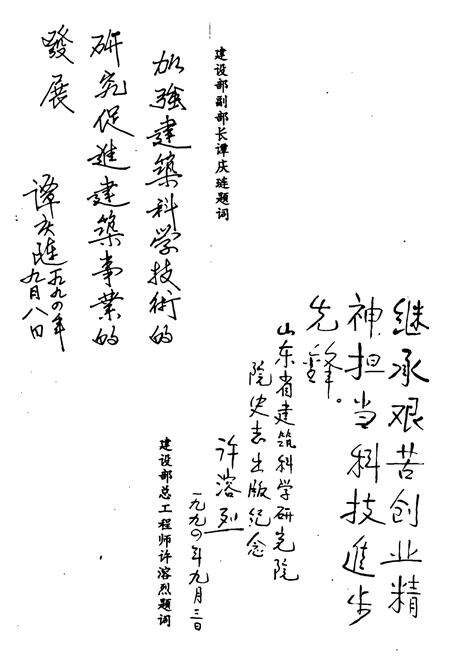 继承艰苦创业精
神担当科技进步
先鋒。
山东省建筑科学研究院
院史志出版纪念
许溶烈
一九九〇年九月三日
建设部总工程师许溶烈题词
建设部副部长谭庆琏题词
加强建築科学技術的
研究促進建築事業的
發展
谭庆琏一九九〇年
九月八日